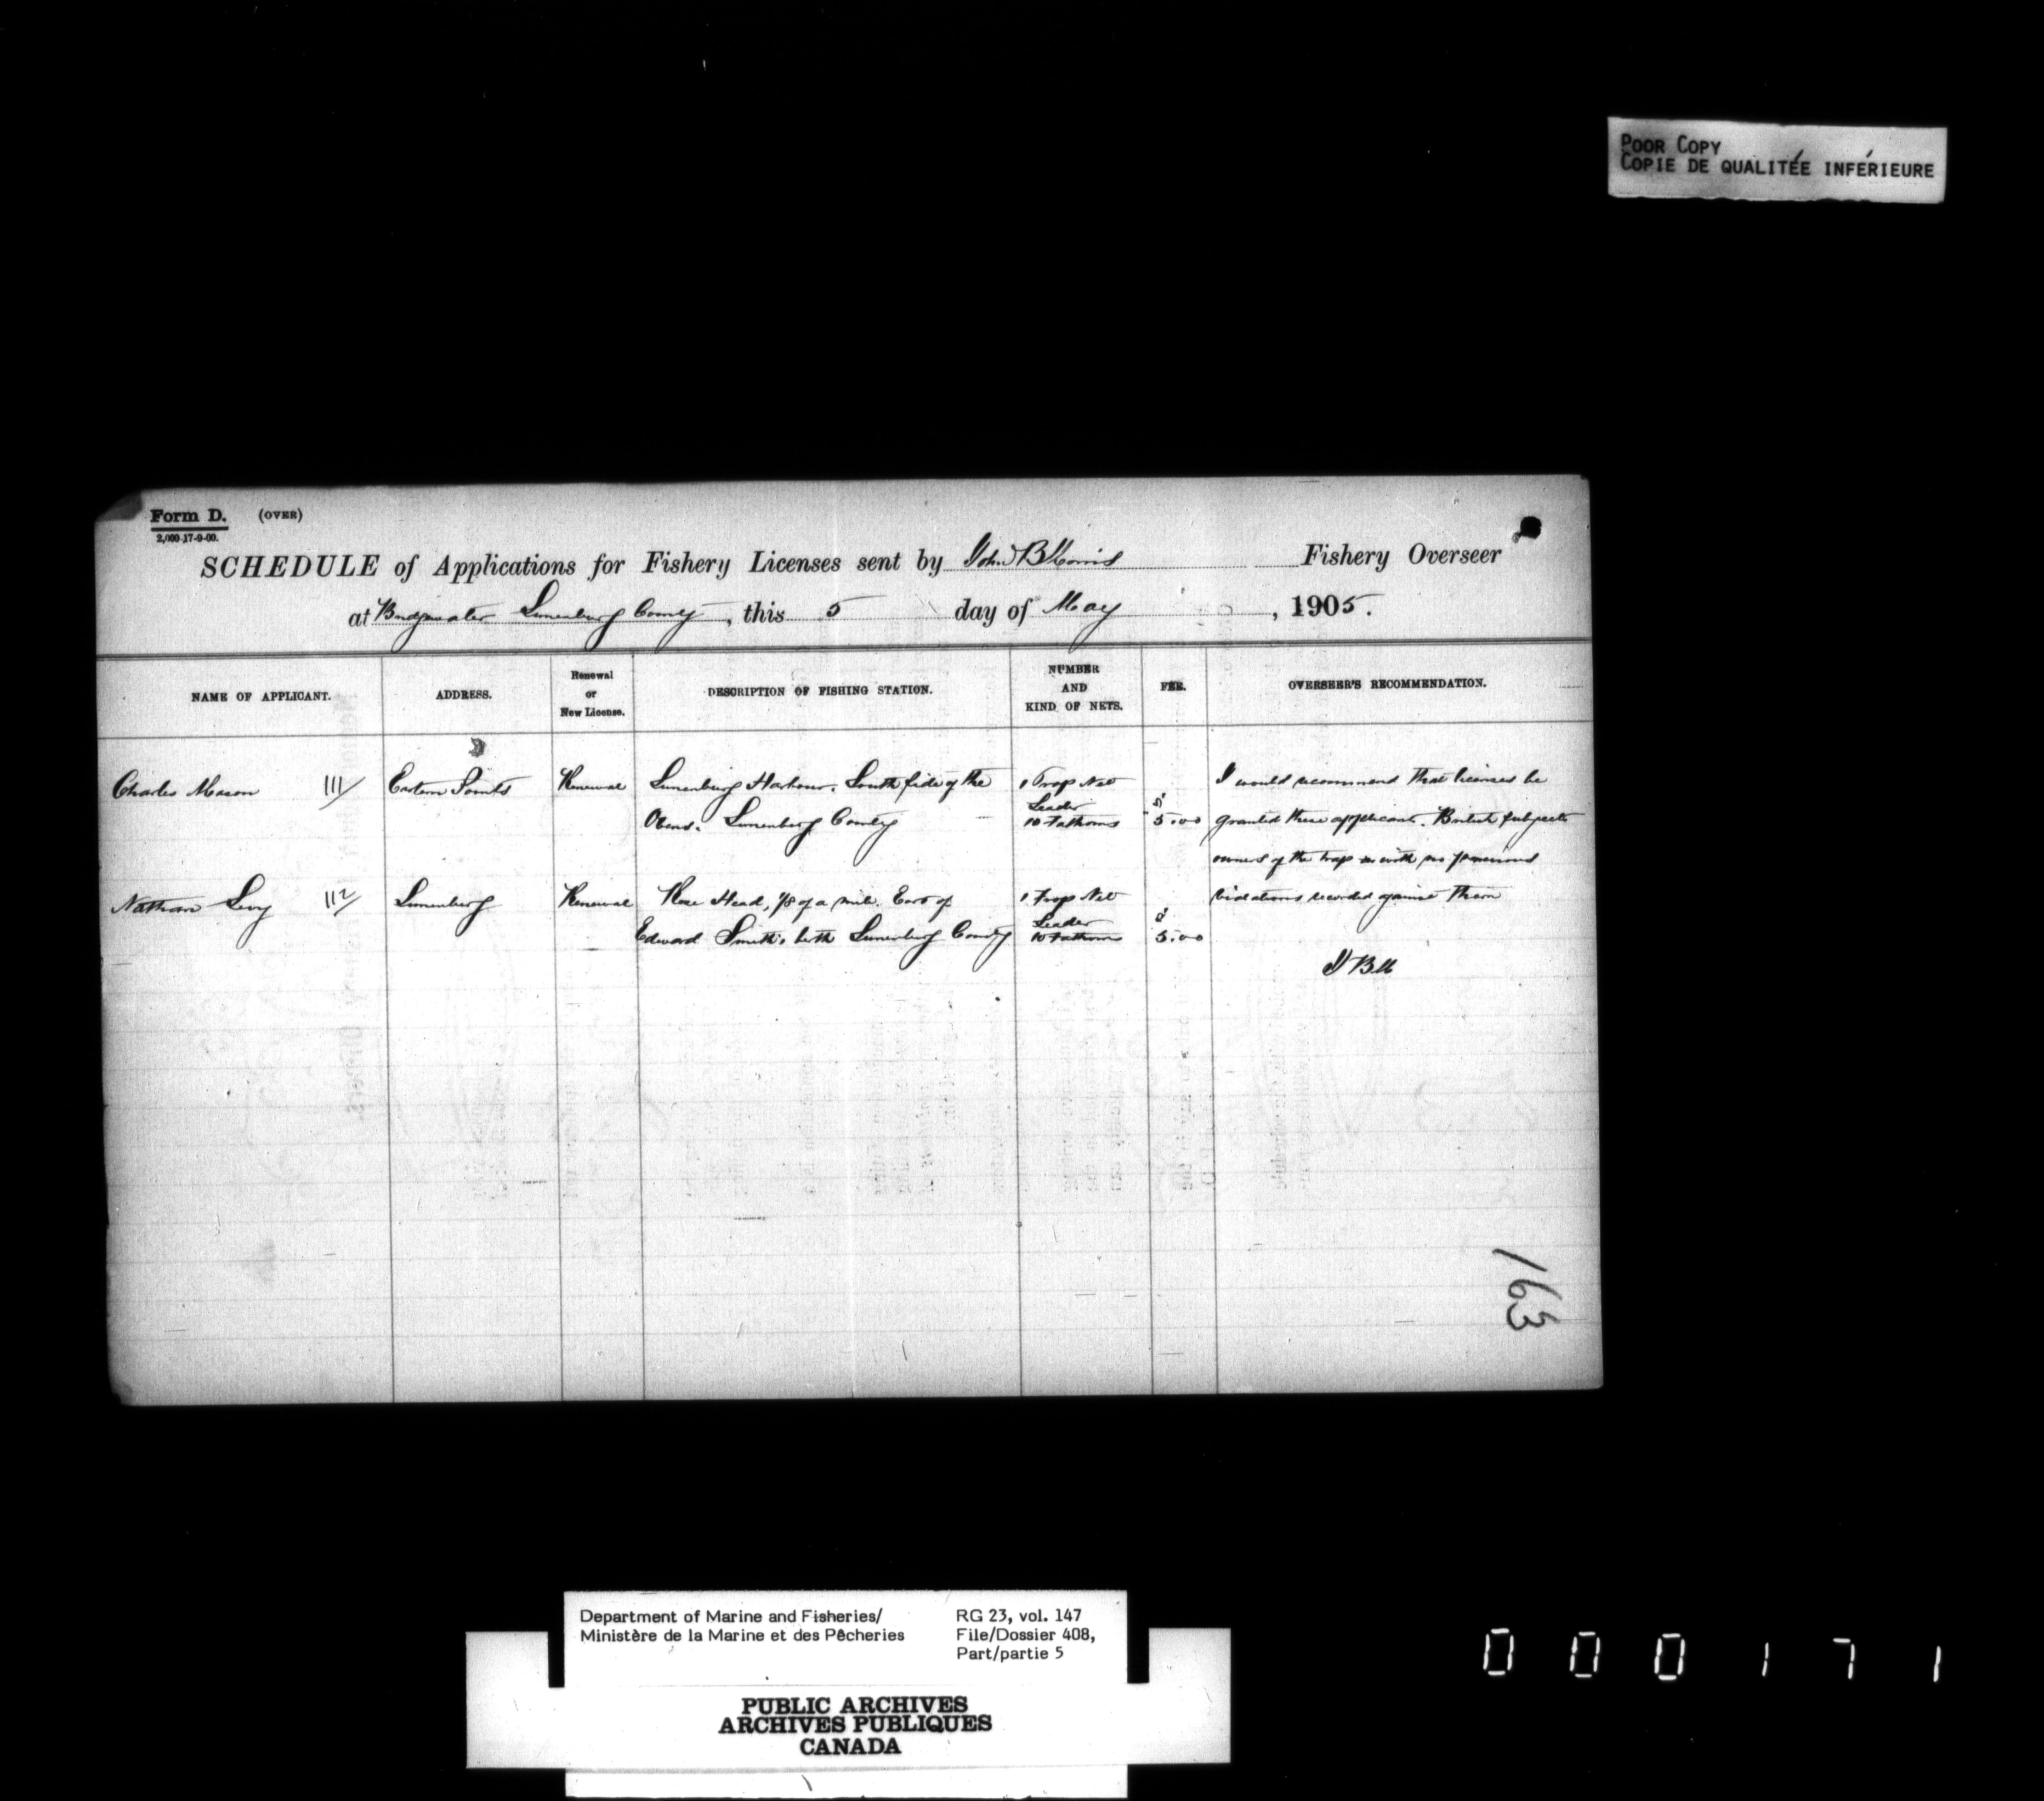 POOR COPY
COPIE DE QUALITÉE INFÉRIEURE
Form D. (OVER)
2,000-17-9-00.
SCHEDULE of Applications for Fishery Licenses sent by John B Morris Fishery Overseer
at Bridgewater Lunenburg County, this 5 day of May, 1905.
NAME OF APPLICANT. ADDRESS. Renewal or New License. DESCRIPTION OF FISHING STATION. NUMBER AND KIND OF NETS. FEE. OVERSEER'S RECOMMENDATION.
Charles Mason 111/ Eastern Points Renewal Lunenburg Harbour. South side of the 1 Trap Net I would recommend that licenses be
Ovens. Lunenburg County Leader 10 Fathoms $ 5.00 granted these applicants. British subjects
owners of the trap with no previous
Nathan Levy 112/ Lunenburg Renewal Rose Head, 1/8 of a mile East of 1 Trap Net violations recorded against them
Edward Smith's berth Lunenburg County Leader 10 Fathoms $ 5.00
JBM
163
Department of Marine and Fisheries/ RG 23, vol. 147
Ministère de la Marine et des Pêcheries File/Dossier 408,
Part/partie 5
PUBLIC ARCHIVES
ARCHIVES PUBLIQUES
CANADA
000171